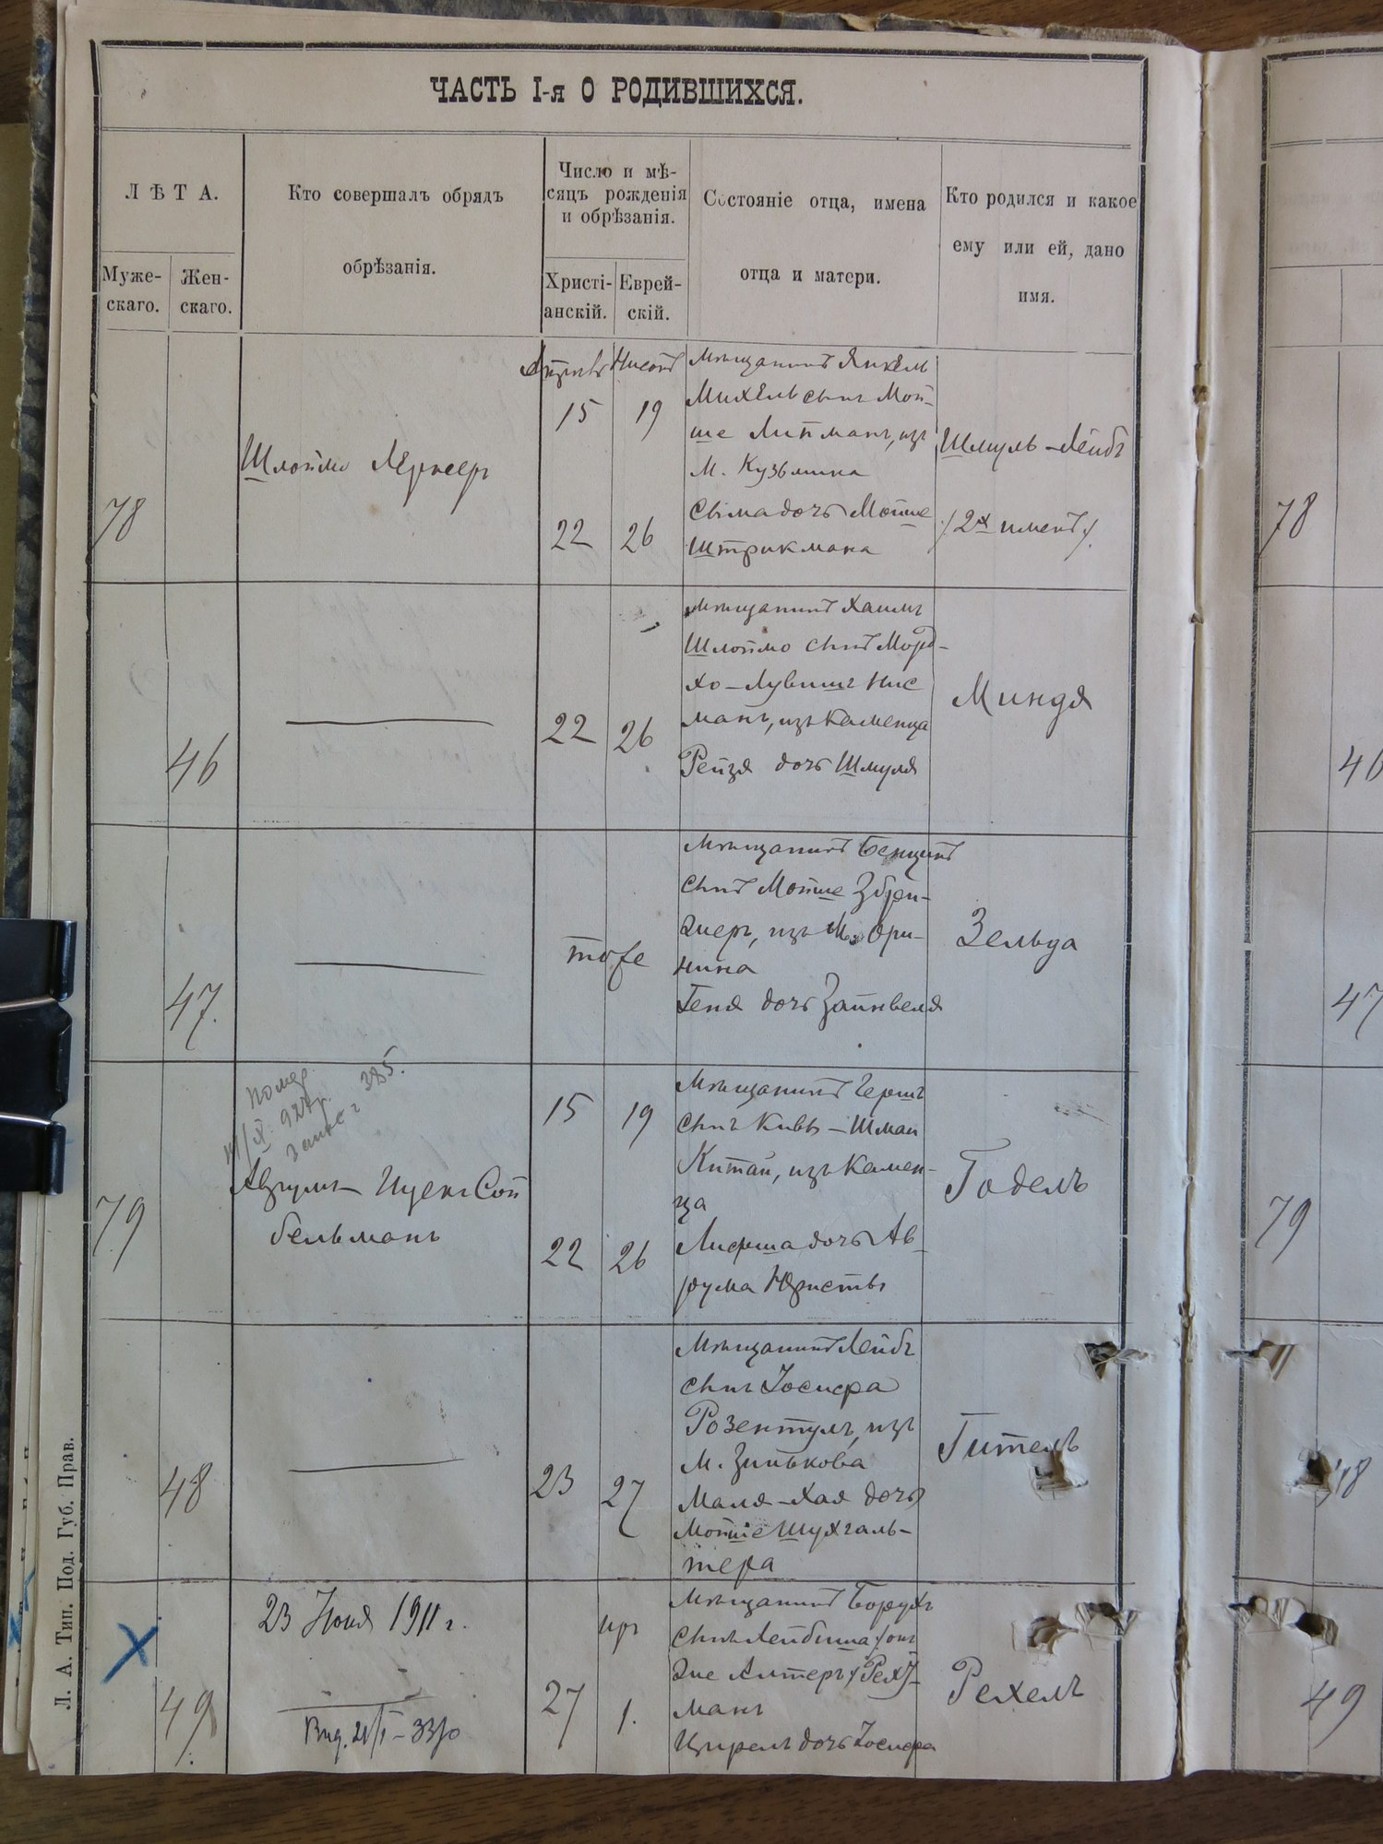 ЧАСТЬ I-я О РОДИВШИХСЯ.
ЛѢТА.
Муже-
скаго.
Жен-
скаго.
Кто совершалъ обрядъ
обрѣзанія.
Число и мѣ-
сяцъ рожденія
и обрѣзанія.
Христі-
анскій.
Еврей-
скій.
Состояніе отца, имена
отца и матери.
Кто родился и какое
ему или ей, дано
имя.
78
Шлоймо Лернеръ
15
19
22
26
Мѣщанинъ Янкель
Михель сынъ Мой-
ше Липманъ, изъ
М. Кузьмина
Сыма дочь Мойше
Штрикмана
Шмуль-Лейбъ
/2х именъ/.
78
46
22
26
Мѣщанинъ Хаимъ
Шлоймо сынъ Морд-
хо-Лувишъ Нис
манъ, изъ Каменца
Рейзя дочь Шмуля
Миндя
46
47.
тоже
Мѣщанинъ Бенционъ
сынъ Мойше Збрей-
геръ, изъ М. Ори-
нина
Геня дочь Зайнвеля
Зельда
47
79
385.
Аврумъ-Ицекъ Сой
бельманъ
15
19
22
26
Мѣщанинъ Гершъ
сынъ Кивы-Шмаи
Китай, изъ Камен-
ца
дочь Ав-
рума
Годель
79
48
23
27
Мѣщанинъ Лейбъ
сынъ Іосифа
Розентулъ, изъ
М. Зинькова
Маля-Хая дочь
Мойше Шухгаль-
тера
Гитель
48
49
23 Іюня 1911 г.
Выд. 21/I-33/о
27
ир
1.
Мѣщанинъ Борухъ
сынъ Лейбиша /онъ
же Алтеръ/ Рех-
манъ
Цирель дочь Іосифа
Рехель
49
Л. А. Тип. Под. Губ. Прав.